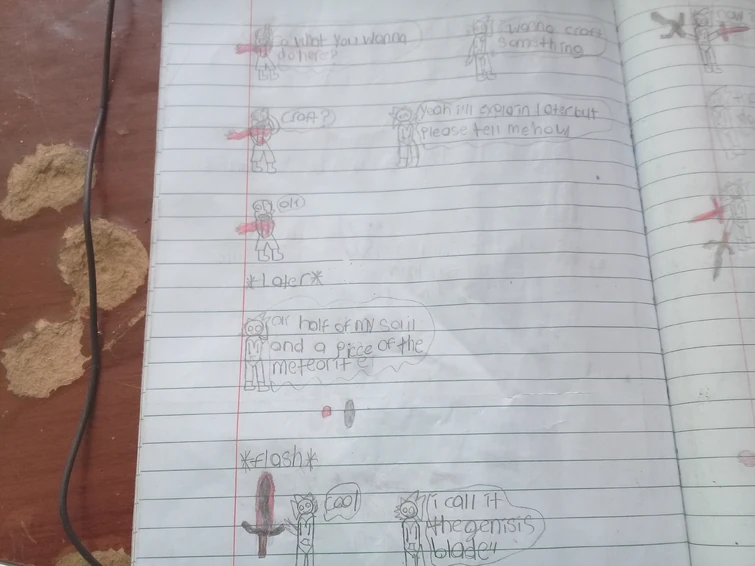 what you wanna
do here?
i wanna craft
something
craft?
Yeah i'll explain later but
please tell me how
ok
*Later*
half of my soul
and a piece of the
meteorite
*flash*
cool
i call it
the genisis
blade"